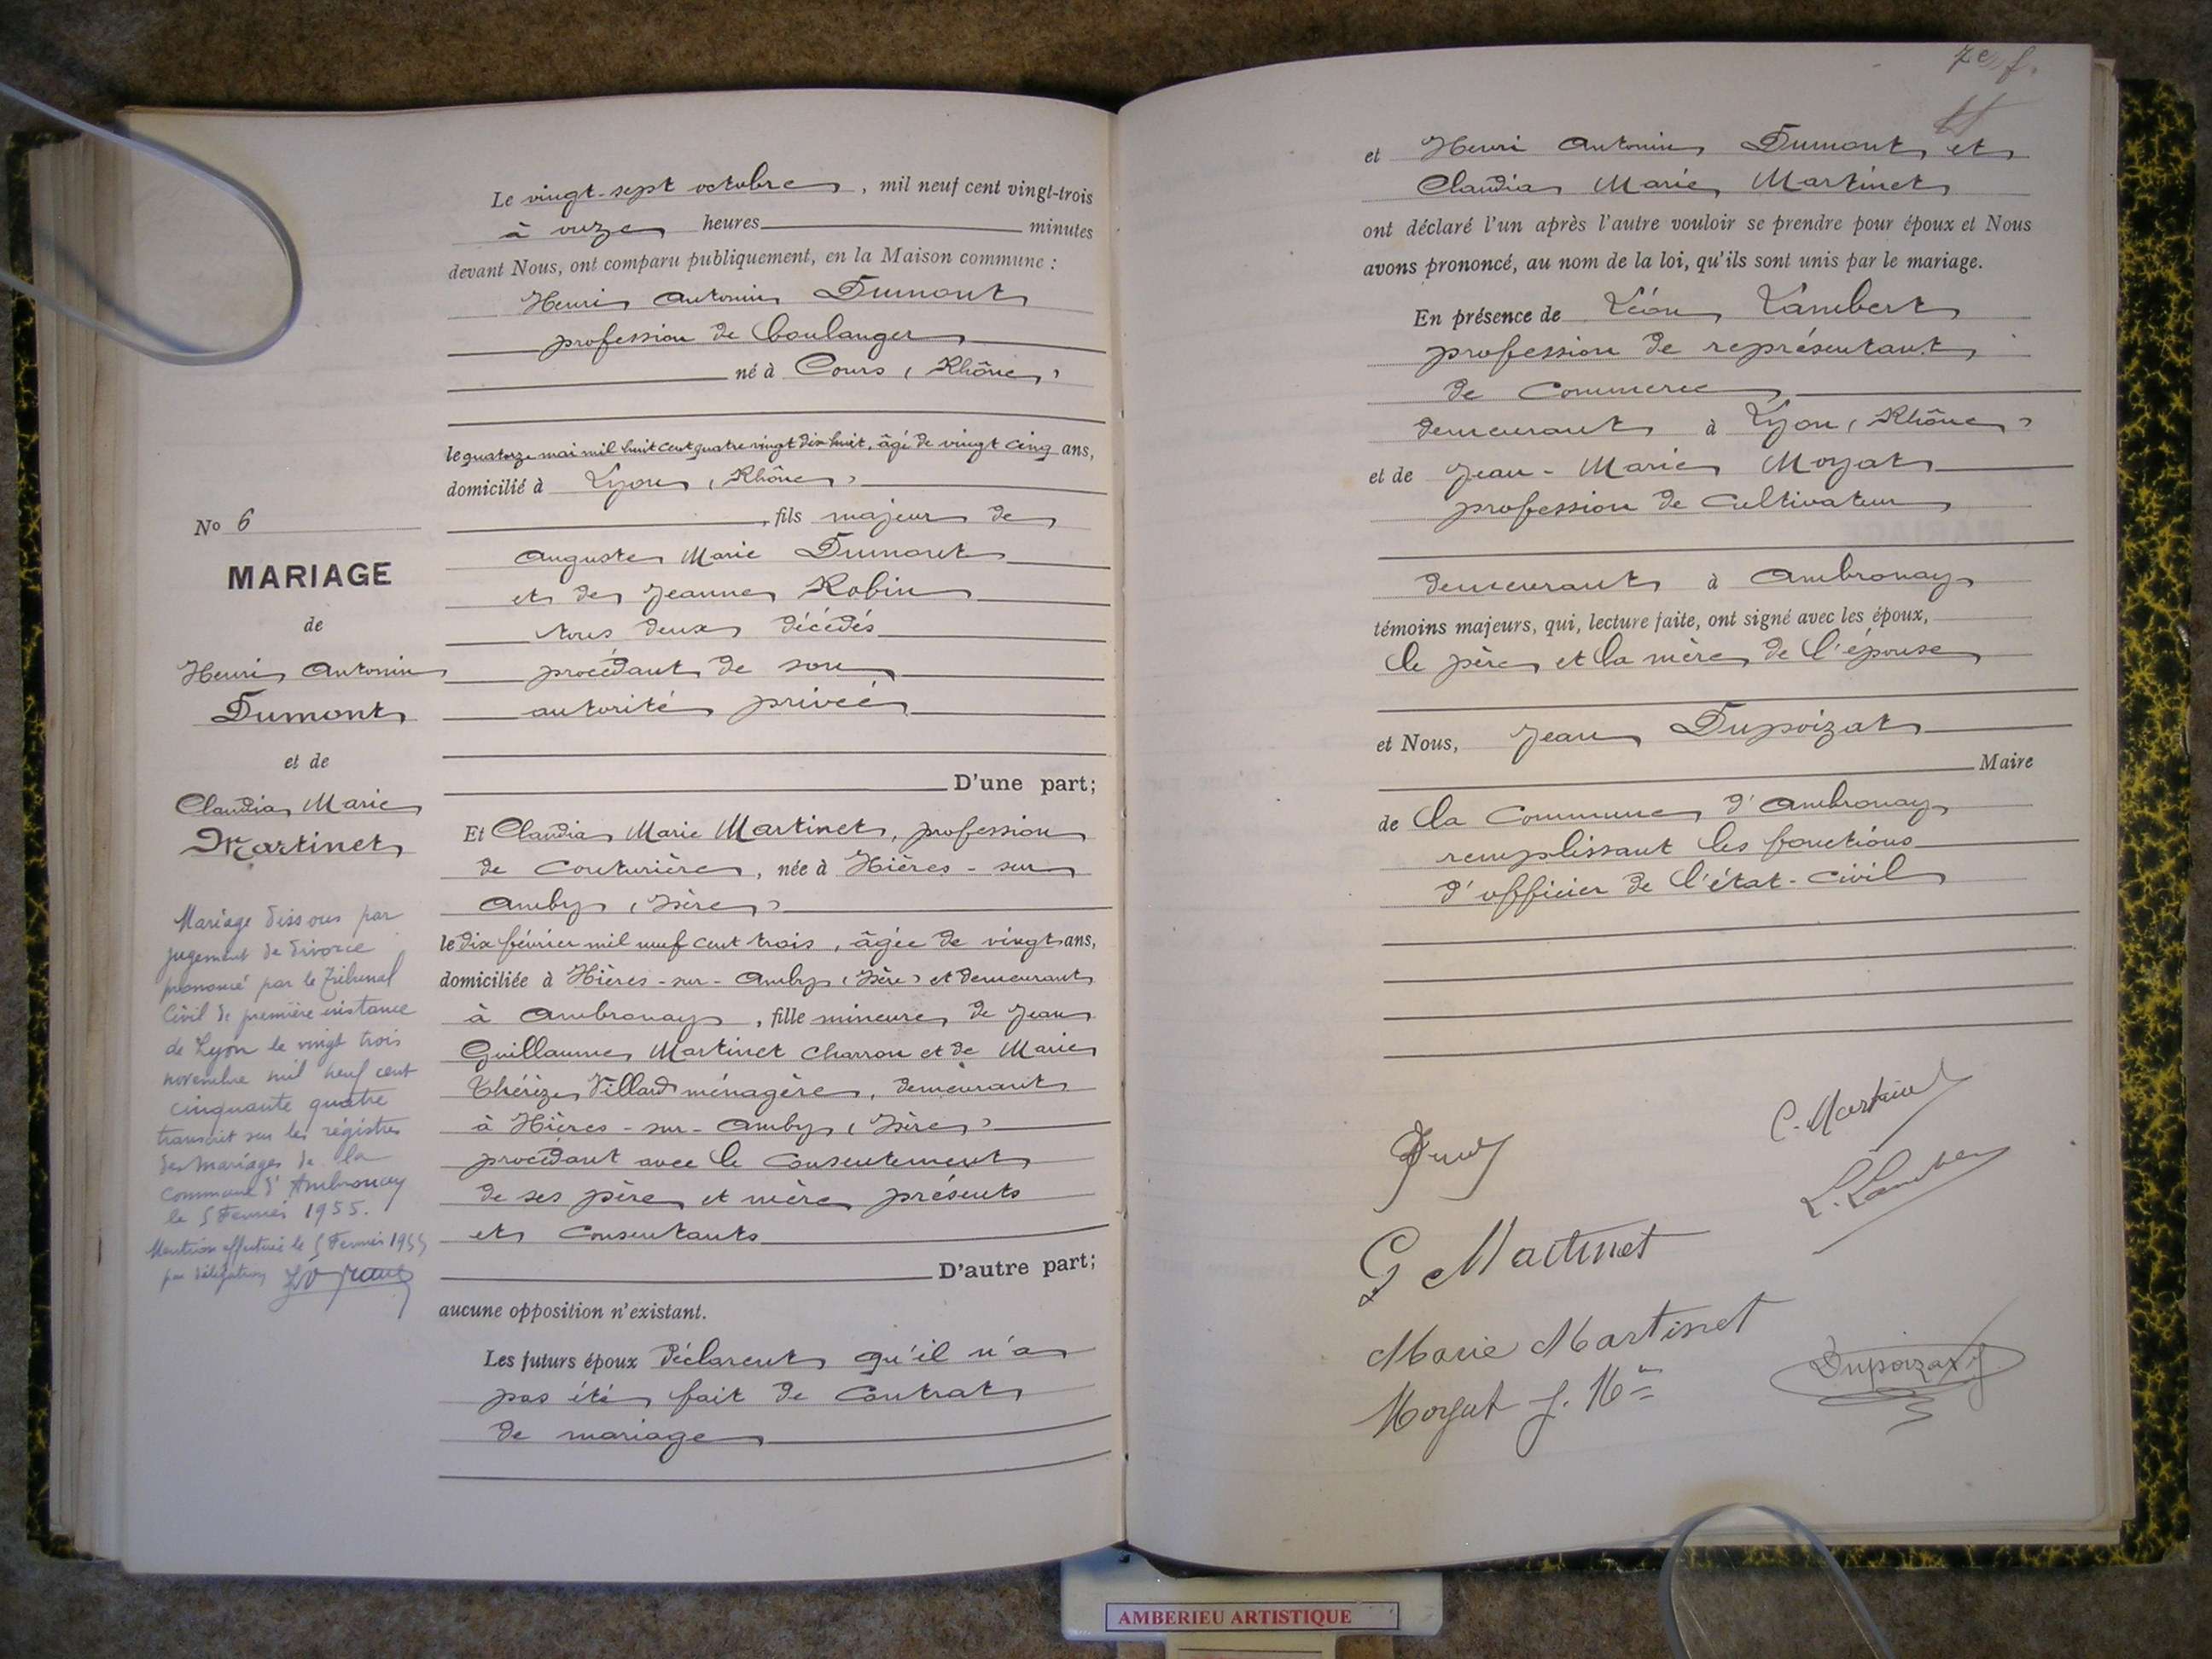 No 6
MARIAGE
de
Henri Antonin
Dumont
et de
Claudia Marie
Martinet
Mariage dissous par
jugement de divorce
prononcé par le Tribunal
Civil de première instance
de Lyon le vingt trois
novembre mil neuf cent
cinquante quatre
transcrit sur les régistres
des mariages de la
commune d'Ambronay
le 5 Fevrier 1955.
Mention effectuée le 5 Fevrier 1955
par délégation
Le vingt-sept octobre, mil neuf cent vingt-trois
à onze heures minutes
devant Nous, ont comparu publiquement, en la Maison commune :
Henri Antonin Dumont
profession de boulanger
né à Cours (Rhône)
le quatorze mai mil huit cent quatre vingt dix huit, âgé de vingt cinq ans,
domicilié à Lyon (Rhône)
, fils majeur de
Auguste Marie Dumont
et de Jeanne Robin
tous deux décédés
procédant de son
autorité privée
D'une part;
Et Claudia Marie Martinet, profession
de Couturière, née à Hières-sur
Amby (Isère)
le dix février mil neuf cent trois, âgée de vingt ans,
domiciliée à Hières-sur-Amby (Isère) et demeurant
à Ambronay, fille mineure de Jean
Guillaume Martinet charron et de Marie
Thérèze Villard ménagère, demeurant
à Hières-sur-Amby (Isère)
procédant avec le consentement
de ses père et mère présents
et consentants
D'autre part;
aucune opposition n'existant.
Les futurs époux déclarent qu'il n'a
pas été fait de contrat
de mariage
7e f.
et Henri Antonin Dumont et
Claudia Marie Martinet
ont déclaré l'un après l'autre vouloir se prendre pour époux et Nous
avons prononcé, au nom de la loi, qu'ils sont unis par le mariage.
En présence de Léon Lambert
profession de représentant
de Commerce
demeurant à Lyon (Rhône)
et de Jean-Marie Moyat
profession de Cultivateur
demeurant à Ambronay
témoins majeurs, qui, lecture faite, ont signé avec les époux,
le père et la mère de l'épouse
et Nous, Jean Dupoizat
Maire
de la Commune d'Ambronay
remplissant les fonctions
d'officier de l'état-civil
C. Martinet
L. Lambert
G Martinet
Marie Martinet
Dupoizat J.
Moyat J. Mie
AMBERIEU ARTISTIQUE